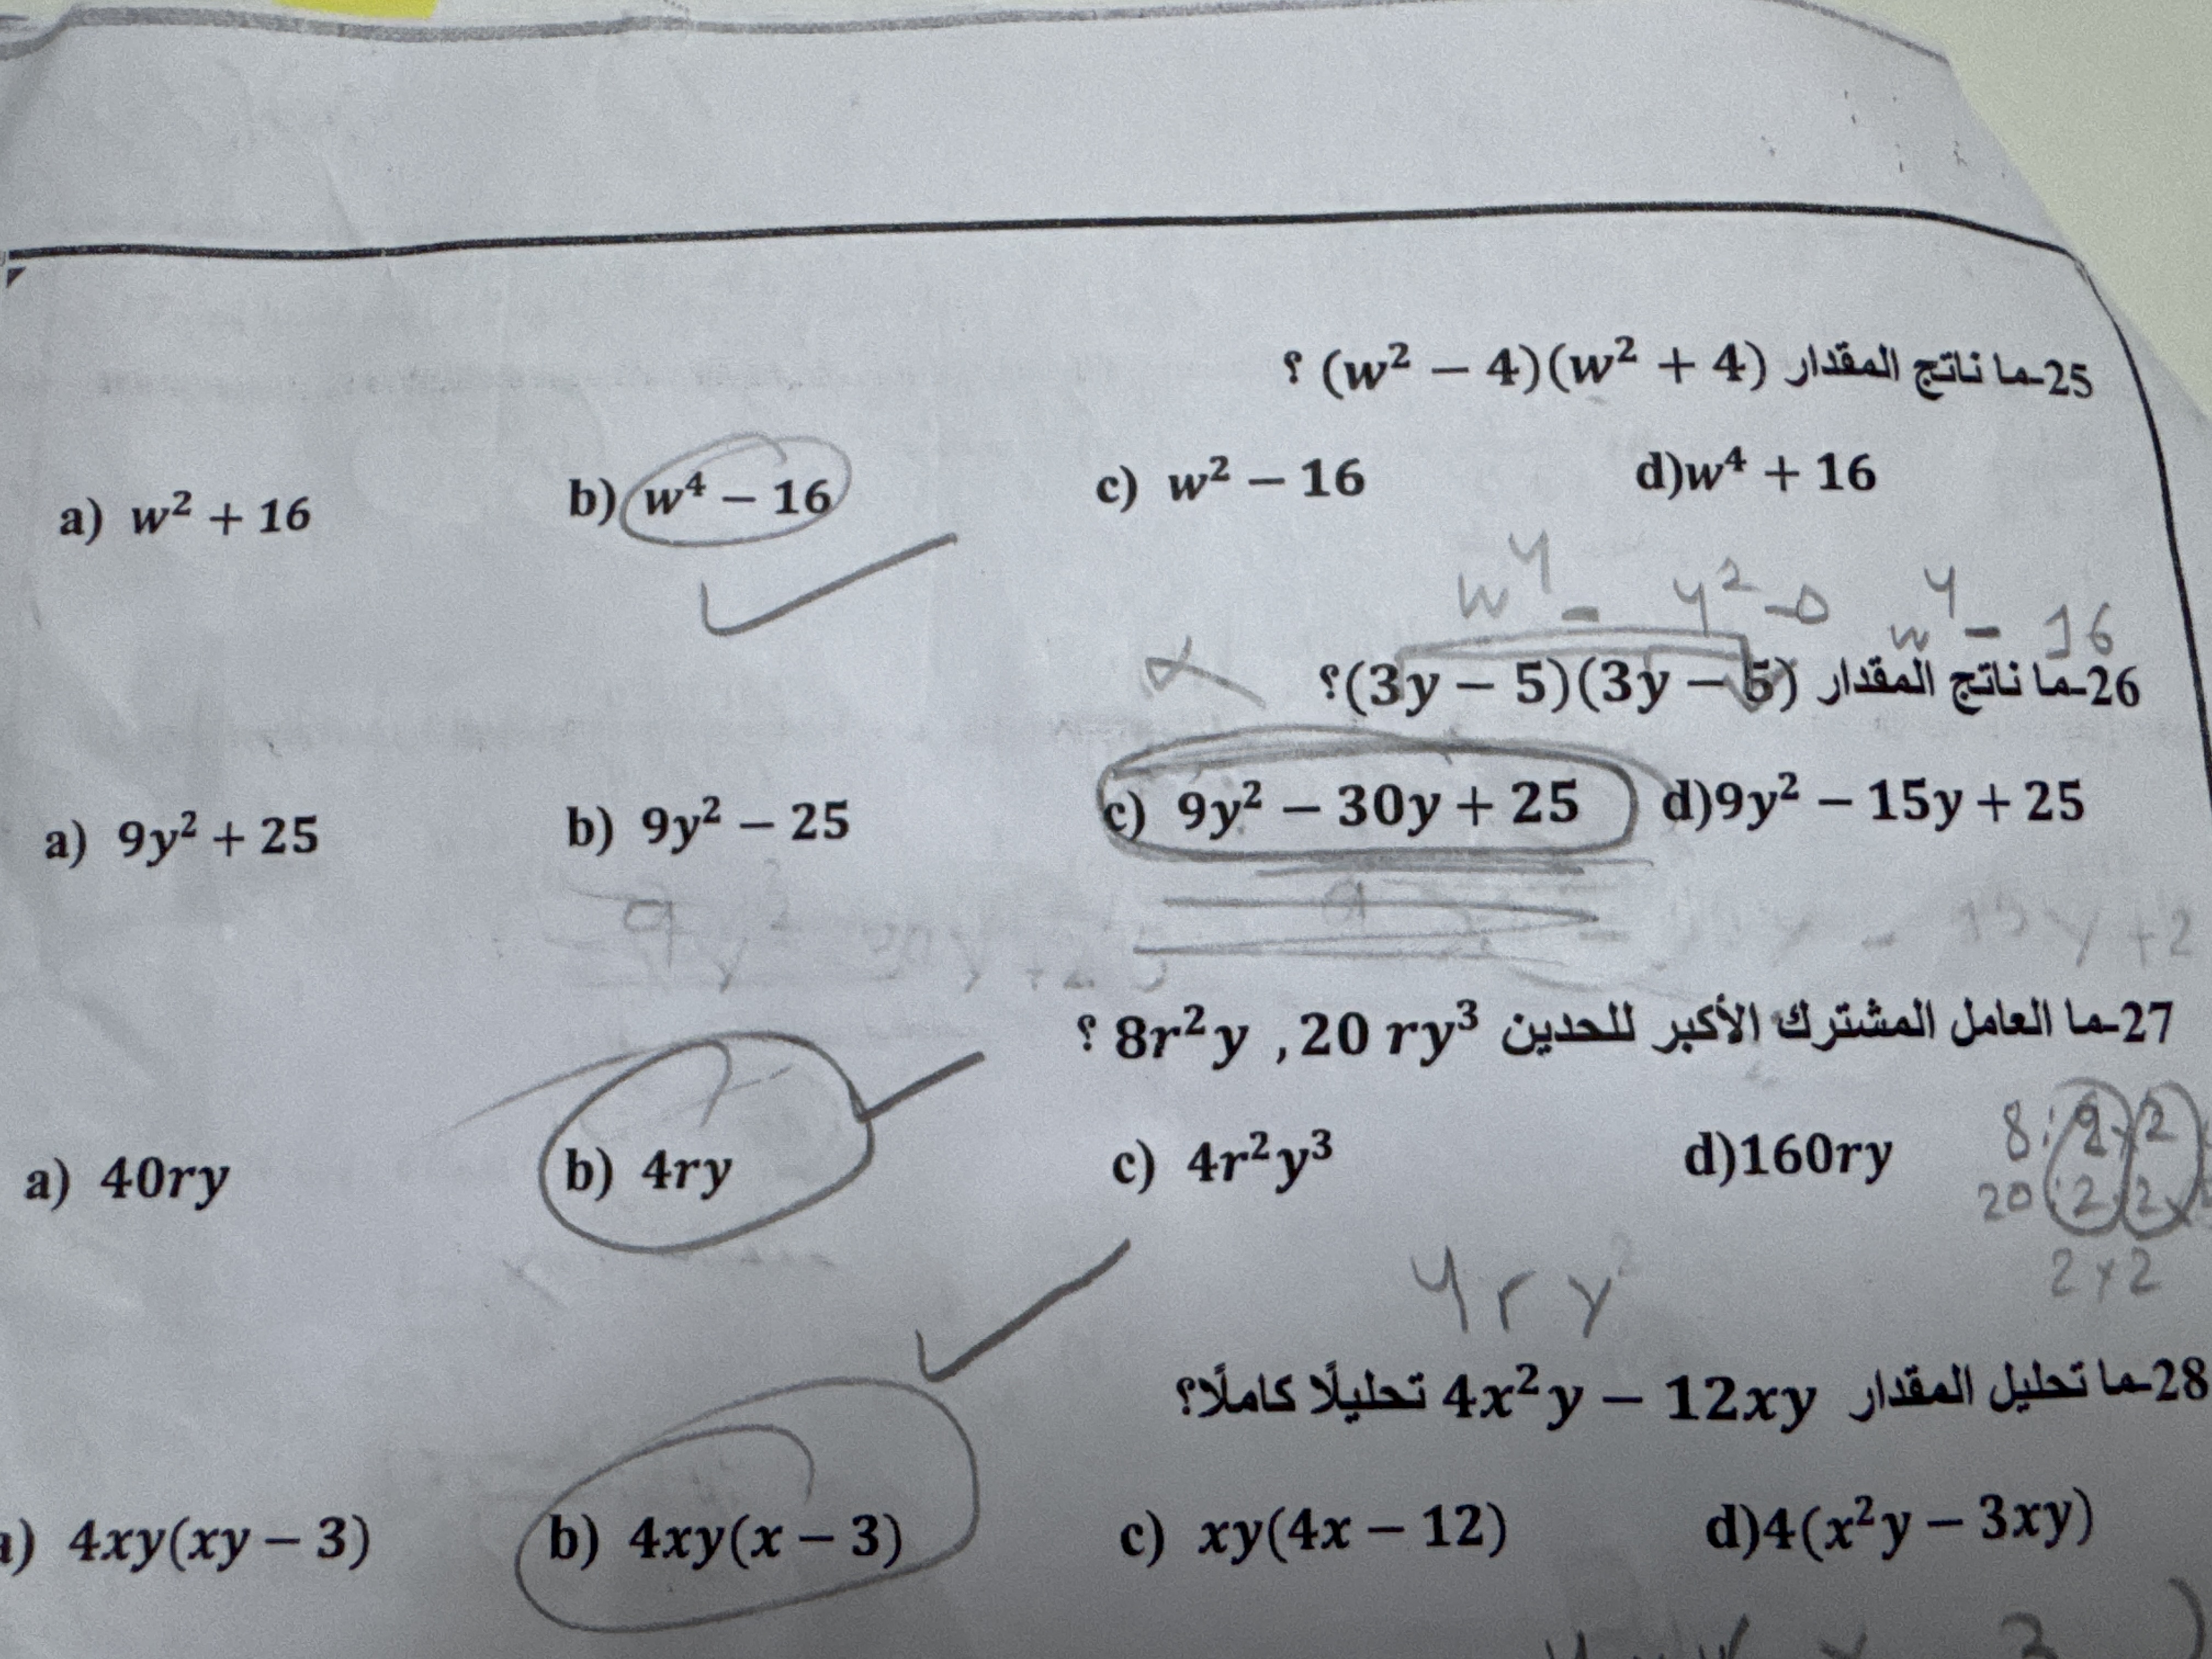 25-ما ناتج المقدار (w² − 4)(w² + 4) ؟
a) w² + 16 b) w⁴ − 16 c) w² − 16 d)w⁴ + 16
w⁴ − 4² w⁴ − 16
26-ما ناتج المقدار (3y − 5)(3y − 5)؟
a) 9y² + 25 b) 9y² − 25 c) 9y² − 30y + 25 d)9y² − 15y + 25
9y² 30y + 25 − 15y + 2
27-ما العامل المشترك الأكبر للحدين 8r²y ,20 ry³ ؟
a) 40ry b) 4ry c) 4r²y³ d)160ry
8: 2×2
20: 2×2×
2×2
4ry
28-ما تحليل المقدار 4x²y − 12xy تحليلًا كاملًا؟
) 4xy(xy − 3) b) 4xy(x − 3) c) xy(4x − 12) d)4(x²y − 3xy)